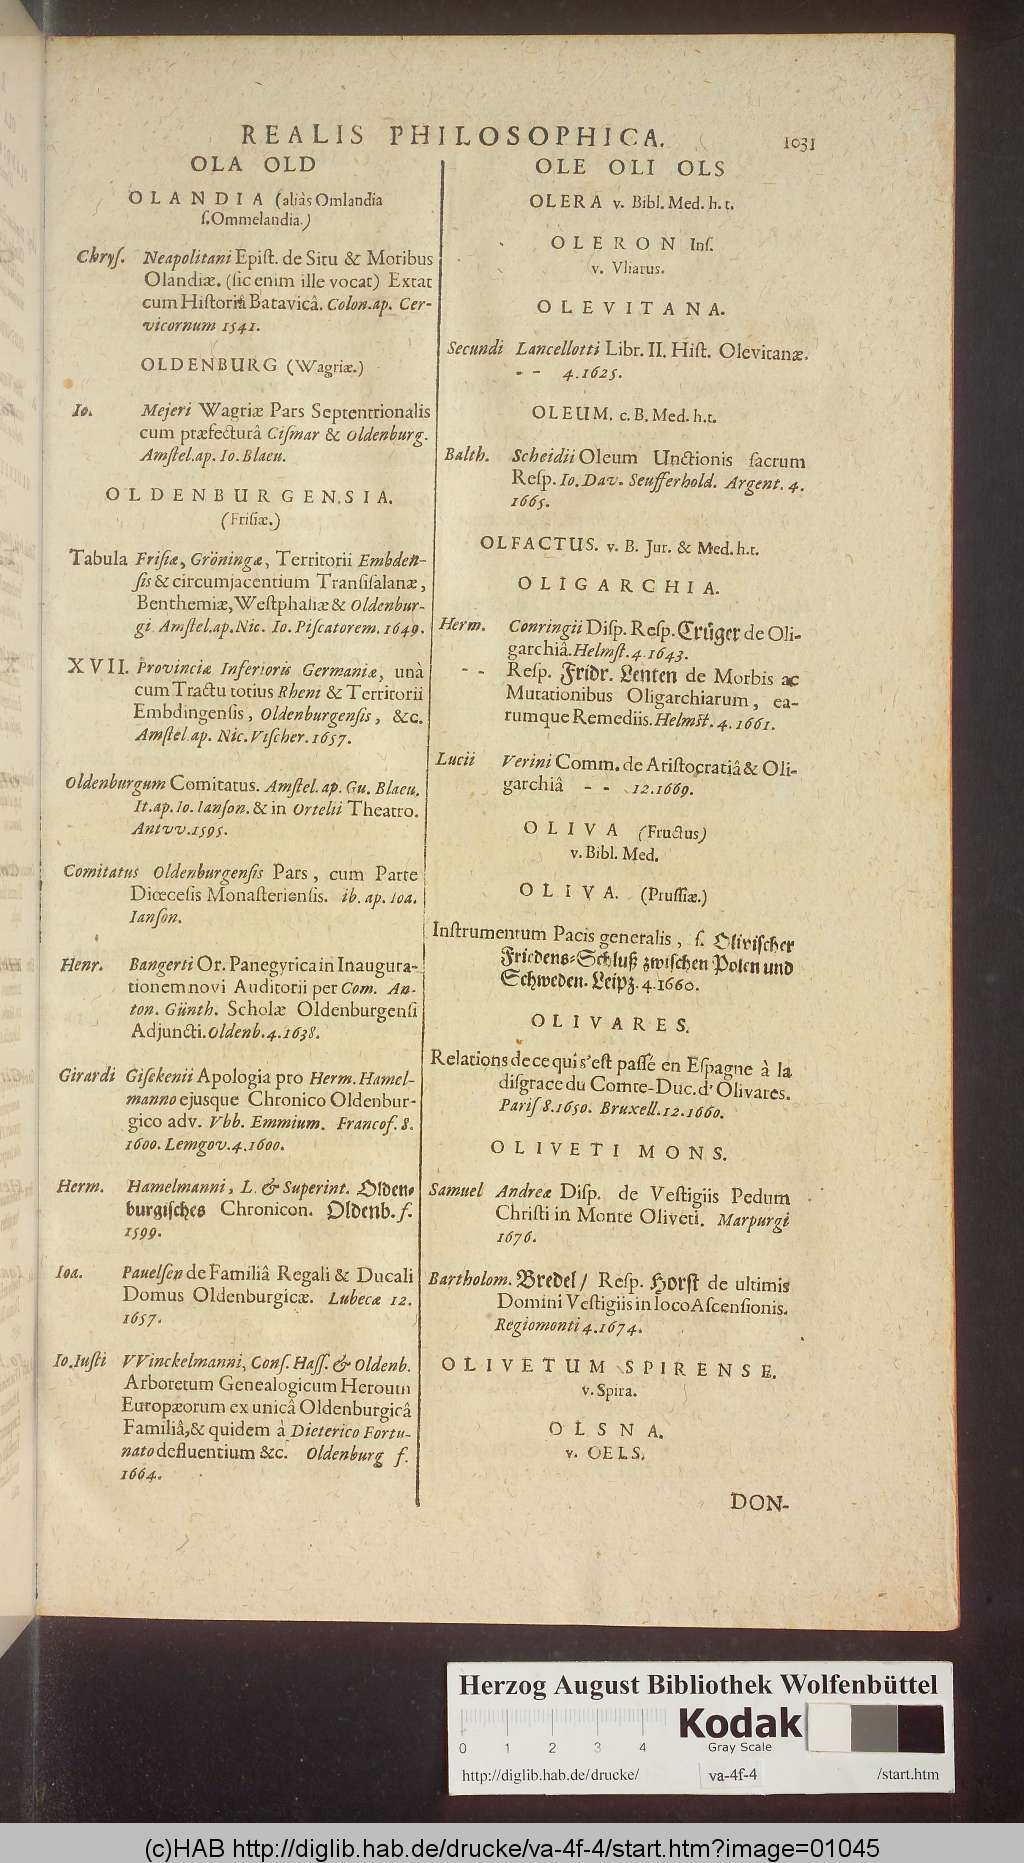 REALIS PHILOSOPHICA. 1031
OLA OLD
OLANDIA (aliàs Omlandia
ſ.Ommelandia.)
Chryſ. Neapolitani Epiſt. de Situ & Moribus
Olandiæ. (ſic enim ille vocat) Extat
cum Hiſtoriâ Batavicâ. Colon.ap. Cer-
vicornum 1541.
OLDENBURG (Wagriæ.)
Io. Mejeri Wagriæ Pars Septentrionalis
cum præfecturâ Ciſmar & Oldenburg.
Amſtel.ap. Io. Blaeu.
OLDENBURGENSIA.
(Friſiæ.)
Tabula Friſiæ, Gröningæ, Territorii Embden-
ſis & circumjacentium Tranſiſalanæ,
Benthemiæ, Weſtphaliæ & Oldenbur-
gi. Amſtel.ap. Nic. Io. Piſcatorem. 1649.
XVII. Provinciæ Inferioris Germaniæ, unà
cum Tractu totius Rheni & Territorii
Embdingenſis, Oldenburgenſis, &c.
Amſtel.ap. Nic. Viſcher. 1657.
Oldenburgum Comitatus. Amſtel. ap. Gu. Blaeu.
It.ap. Io. Ianſon. & in Ortelii Theatro.
Antvv.1595.
Comitatus Oldenburgenſis Pars, cum Parte
Diœceſis Monaſterienſis. ib. ap. Ioa.
Ianſon.
Henr. Bangerti Or. Panegyrica in Inaugura-
tionem novi Auditorii per Com. An-
ton. Günth. Scholæ Oldenburgenſi
Adjuncti. Oldenb.4.1638.
Girardi Giſekenii Apologia pro Herm. Hamel-
manno ejusque Chronico Oldenbur-
gico adv. Vbb. Emmium. Francof. 8.
1600. Lemgov. 4. 1600.
Herm. Hamelmanni, L. & Superint. Olden-
burgiſches Chronicon. Oldenb. f.
1599.
Ioa. Pauelſen de Familiâ Regali & Ducali
Domus Oldenburgicæ. Lubecæ 12.
1657.
Io. Iuſti VVinckelmanni, Conſ. Haſſ. & Oldenb.
Arboretum Genealogicum Heroum
Europæorum ex unicâ Oldenburgicâ
Familiâ, & quidem à Dieterico Fortu-
nato defluentium &c. Oldenburg f.
1664.
OLE OLI OLS
OLERA v. Bibl. Med. h. t.
OLERON Inſ.
v. Vliarus.
OLEVITANA.
Secundi Lancellotti Libr. II. Hiſt. Olevitanæ.
- - 4.1625.
OLEUM. c. B. Med. h.t.
Balth. Scheidii Oleum Unctionis ſacrum
Reſp. Io. Dav. Seufferhold. Argent. 4.
1665.
OLFACTUS. v. B. Jur. & Med. h.t.
OLIGARCHIA.
Herm. Conringii Diſp. Reſp. Crüger de Oli-
garchiâ. Helmſt. 4. 1643.
- - Reſp. Fridr. Lenten de Morbis ac
Mutationibus Oligarchiarum, ea-
rumque Remediis. Helmſt. 4. 1661.
Lucii Verini Comm. de Ariſtocratiâ & Oli-
garchiâ - - 12.1669.
OLIVA (Fructus)
v. Bibl. Med.
OLIVA. (Pruſſiæ.)
Inſtrumentum Pacis generalis, ſ. Oliviſcher
Friedens-Schluß zwiſchen Polen und
Schweden. Leipz. 4. 1660.
OLIVARES.
Relations de ce qui s'eſt paſſé en Eſpagne à la
diſgrace du Comte-Duc. d'Olivares.
Pariſ 8. 1650. Bruxell. 12. 1660.
OLIVETI MONS.
Samuel Andreæ Diſp. de Veſtigiis Pedum
Chriſti in Monte Oliveti. Marpurgi
1676.
Bartholom. Bredel / Reſp. Horſt de ultimis
Domini Veſtigiis in loco Aſcenſionis.
Regiomonti 4. 1674.
OLIVETUM SPIRENSE.
v. Spira.
OLSNA.
v. OELS.
DON-
Herzog August Bibliothek Wolfenbüttel
0 1 2 3 4
Kodak
Gray Scale
http://diglib.hab.de/drucke/ va-4f-4 /start.htm
(c)HAB http://diglib.hab.de/drucke/va-4f-4/start.htm?image=01045